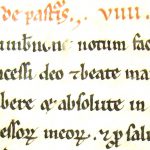 de pastis. viiii.
notum fac
cessi deo & beate mar
bere & absolute in
cessorꝝ meorꝝ. & ꝓ salu